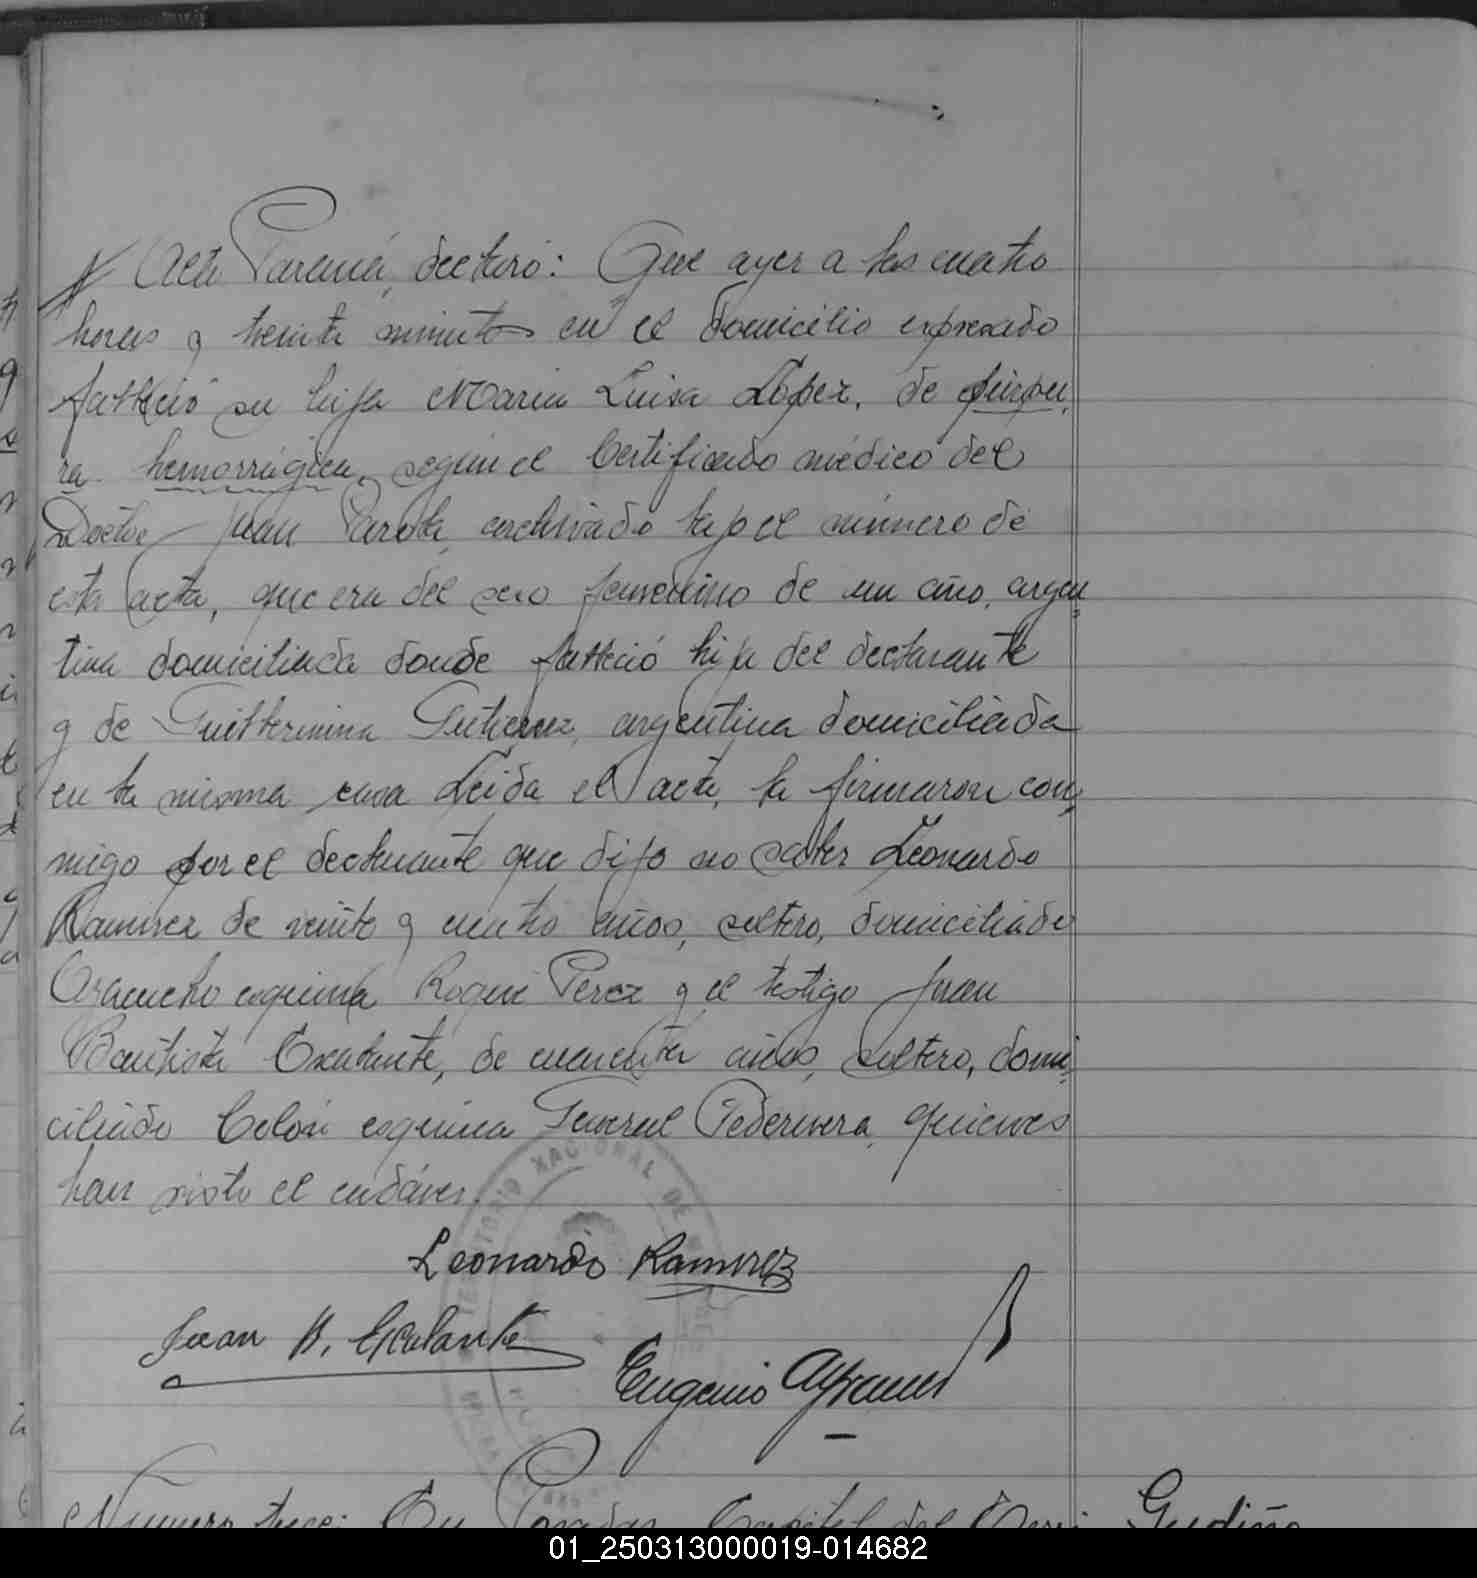 Alto Paraná, declaró: Que ayer a las cuatro
horas y treinta minutos en el domicilio expresado
falleció su hija Maria Luisa López, de púrpu,
ra hemorrágica, según el Certificado médico del
Doctor Juan Parola archivado bajo el número de
esta acta, que era del sexo femenino de un año, argen
tina domiciliada donde falleció hija del declarante
y de Guillermina Gutierrez, argentina domiciliada
en la misma casa Leida el acta, la firmaron con,
migo por el declarante que dijo no saber Leonardo
Ramirez de veinte y cuatro años, soltero, domiciliado
Ayacucho esquina Roque Perez y el testigo Juan
Bautista Escalante, de cuarenta años, soltero, domi
ciliado Colón esquina General Pedernera, quienes
han visto el cadáver.
TERRITORIO NACIONAL DE
Leonardo Ramirez
Juan B. Escalante
Eugenio
Número trece: En Posadas Capital del Terri
Gudiño
01_250313000019-014682